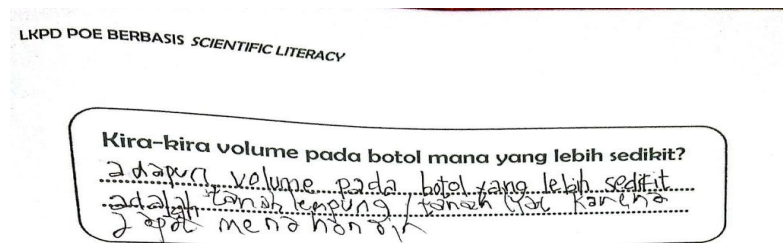 LKPD POE BERBASIS SCIENTIFIC LITERACY
Kira-kira volume pada botol mana yang lebih sedikit?
adapun volume pada botol yang lebih sedikit
adalah tanah lempung / tanah liat karena
dapat menahan air